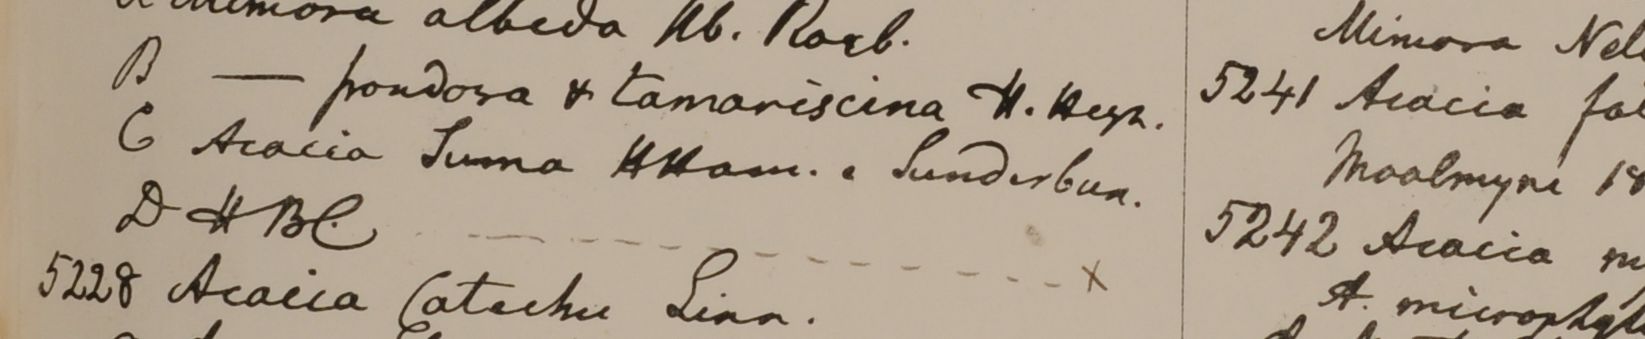 Mimosa albeda Hb. Roxb.
B — frondosa & tamariscina H. Heyn.
C Acacia Suma HHam. e Sunderbun.
D HBC. x
5228 Acacia Catechu Linn.
Mimosa
5241 Acacia
Moalmyne
5242 Acacia
A.